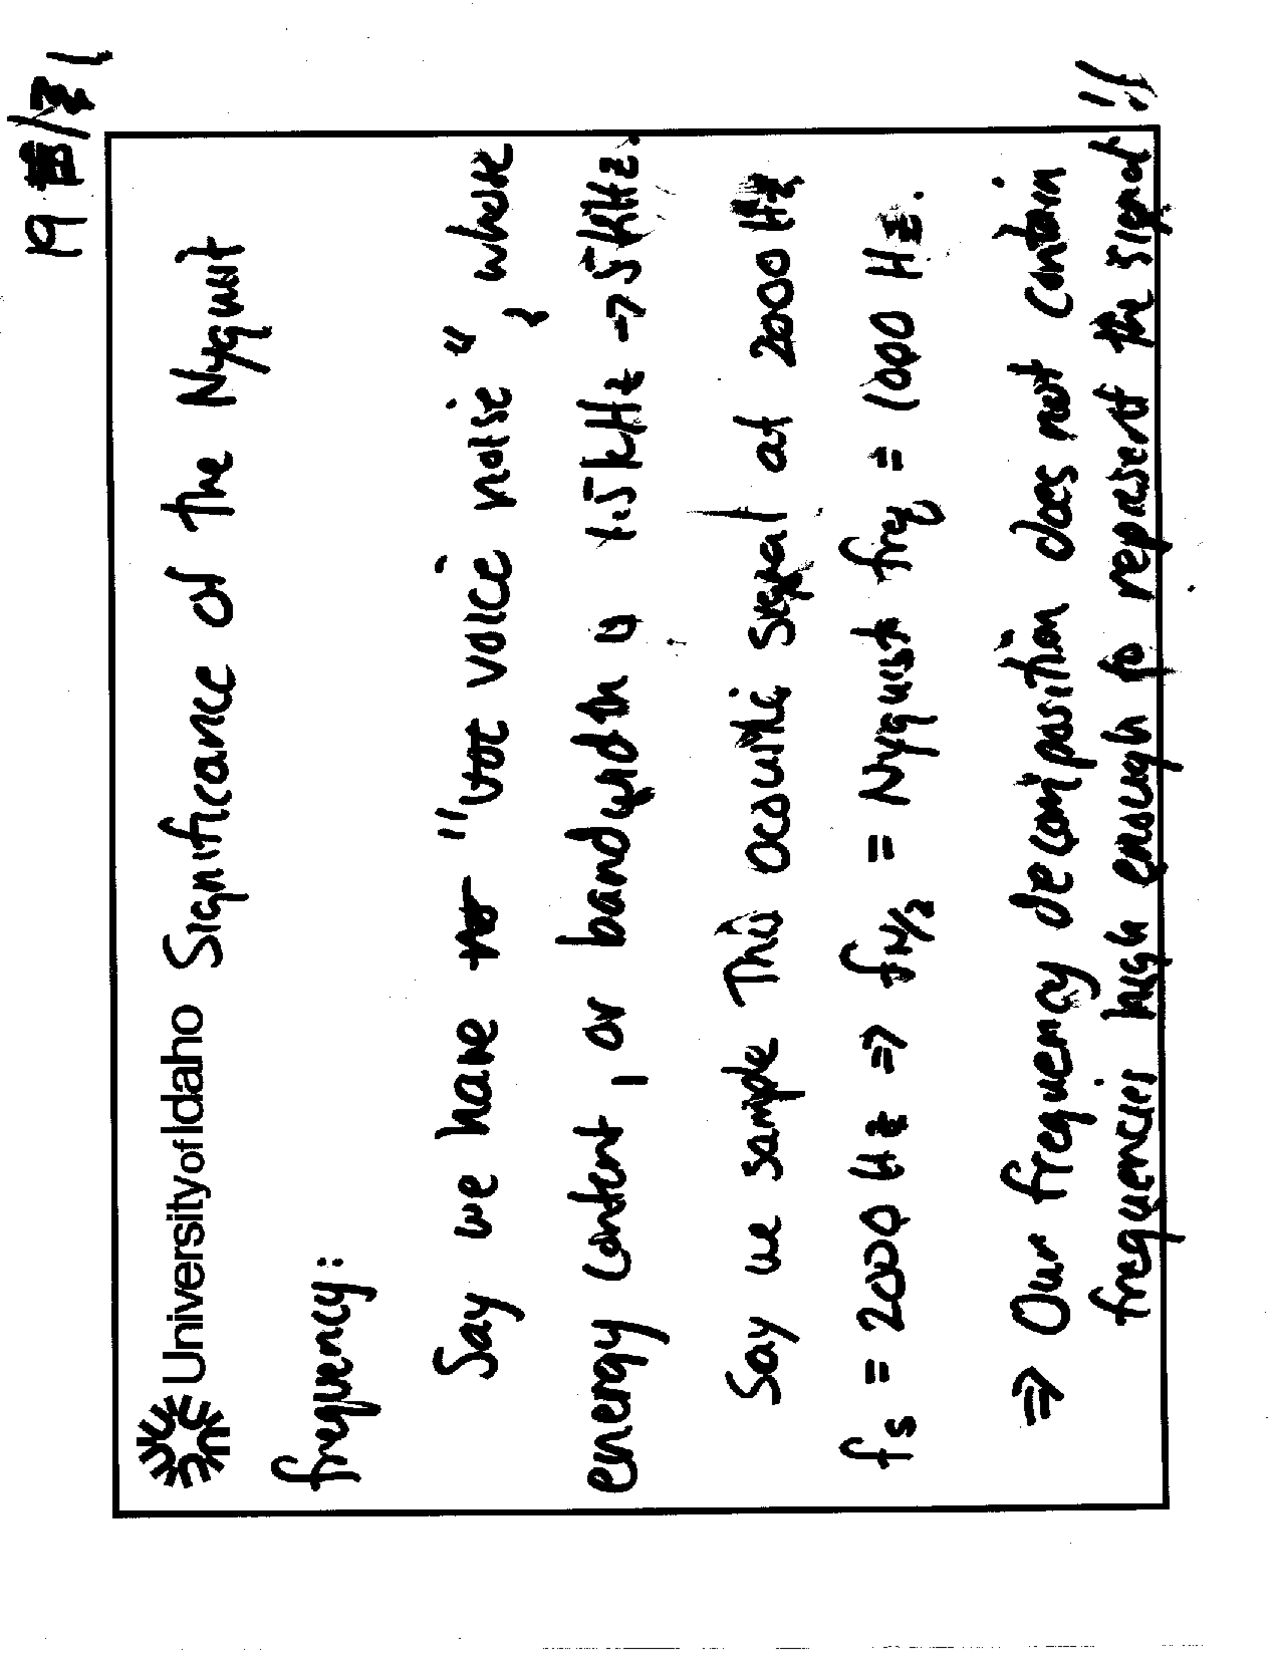 19 /21
University of Idaho Significance of the Nyquist
frequency:
Say we have "voice noise", whose
energy content, or bandwidth is 1.5kHz → 5kHz.
Say we sample this acoustic signal at 2000 Hz
fs = 2000 Hz ⇒ fN/2 = Nyquist freq = 1000 Hz.
⇒ Our frequency decomposition does not contain
frequencies high enough to represent the signal!!